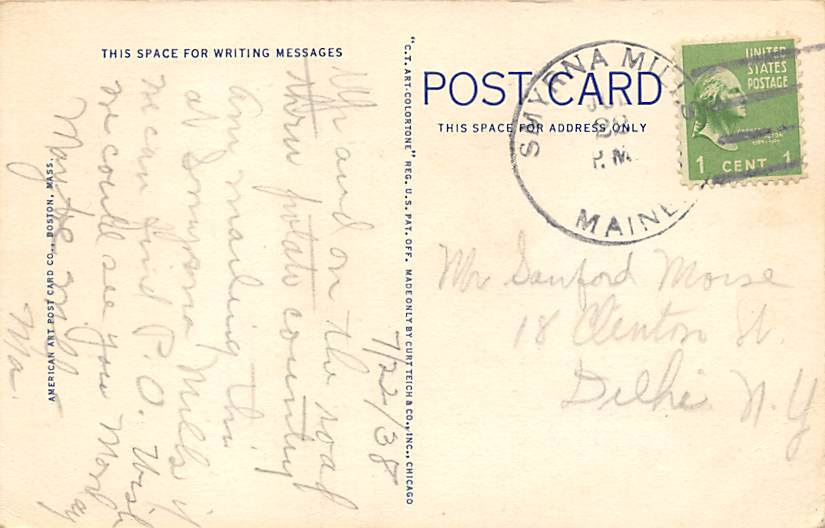 THIS SPACE FOR WRITING MESSAGES
7/22/38
Up and on the road
thru potato country
am mailing this
at Smyrna Mills if
we can find P.O. Wish
we could see you Monday
Maybe will
Ma.
AMERICAN ART POST CARD CO., BOSTON, MASS.
"C.T. ART-COLORTONE" REG. U.S. PAT. OFF. MADE ONLY BY CURT TEICH & CO., INC., CHICAGO
POST CARD
THIS SPACE FOR ADDRESS ONLY
SMYRNA MILLS
P.M.
MAINE
UNITED
STATES
POSTAGE
1 CENT 1
Mr Sanford Morse
18 Clinton St.
Delhi N.Y